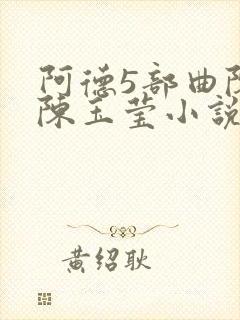 阿德5部曲
陳玉莹小說
黄绍耿